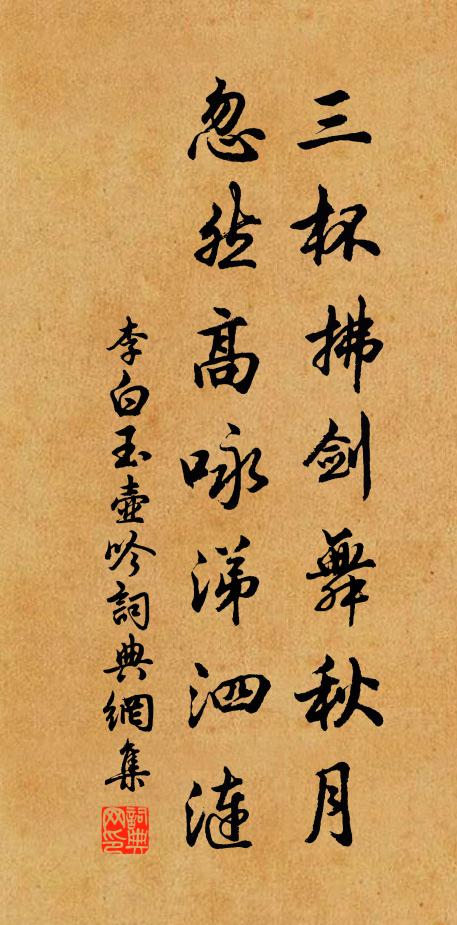 三杯拂剑舞秋月
忽然高咏涕泗涟
李白玉壶吟詞典網集
詞典网印